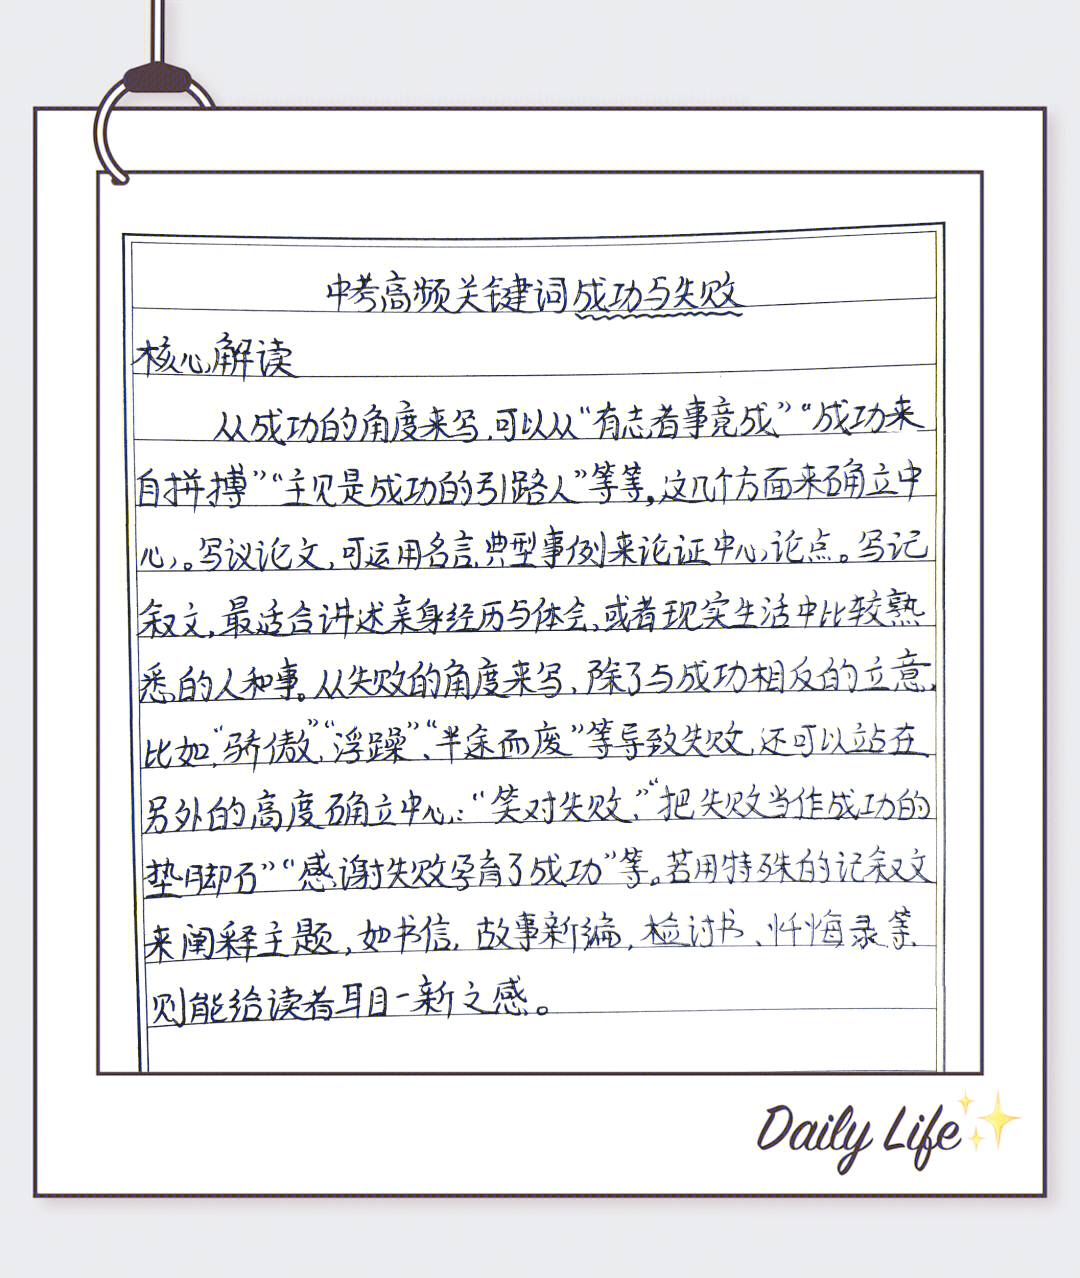 中考高频关键词成功与失败
核心解读
从成功的角度来写,可以从“有志者事竟成”“成功来
自拼搏”“主见是成功的引路人”等等,这几个方面来确立中
心。写议论文,可运用名言,典型事例来论证中心论点。写记
叙文,最适合讲述亲身经历与体会,或者现实生活中比较熟
悉的人和事。从失败的角度来写、除了与成功相反的立意,
比如“骄傲”,“浮躁”、“半途而废”等导致失败,还可以站在
另外的高度确立中心:“笑对失败”,“把失败当作成功的
垫脚石”“感谢失败孕育了成功”等。若用特殊的记叙文
来阐释主题,如书信,故事新编,检讨书、忏悔录等
则能给读者耳目一新之感。
Daily Life